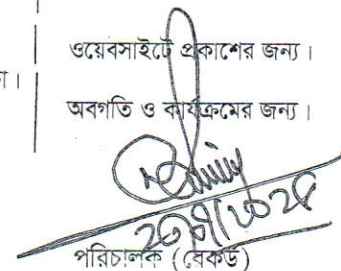 ওয়েবসাইটে প্রকাশের জন্য।
া।
অবগতি ও কার্যক্রমের জন্য।
পরিচালক (রেকর্ড)